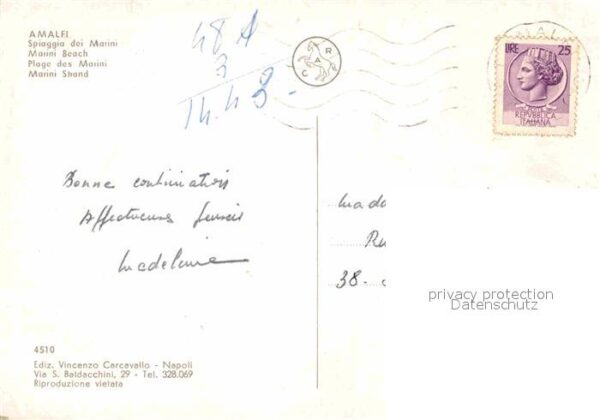 AMALFI
Spiaggia dei Marini
Marini Beach
Plage des Marini
Marini Strand
48 A
3
14.43
C A R F
LIRE 25
POSTE
REPVBBLICA
ITALIANA
Bonne continuation
Affectueuses pensées
Madeleine
Mada
Ru
38-
privacy protection
Datenschutz
4510
Ediz. Vincenzo Carcavallo - Napoli
Via S. Baldacchini, 29 - Tel. 328.069
Riproduzione vietata